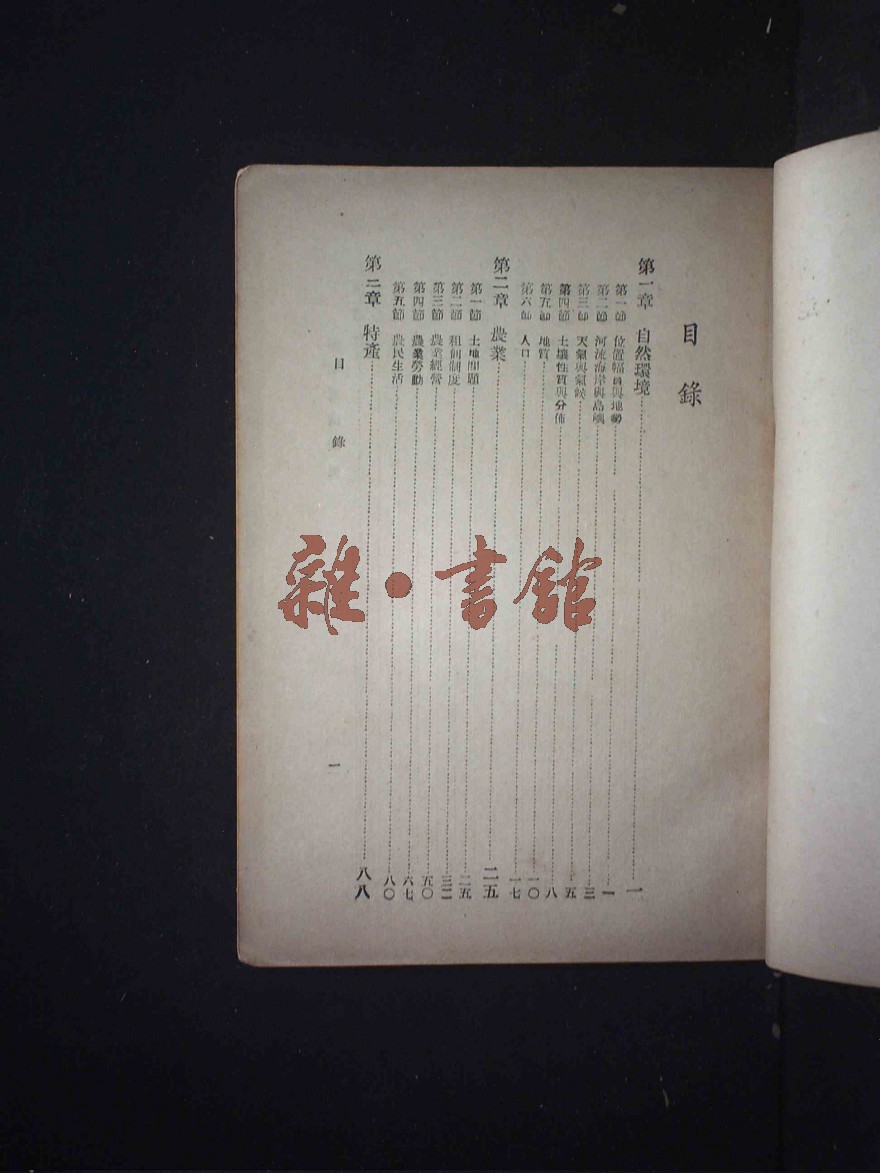 目錄
第一章 自然環境 一
第一節 位置幅員與地勢 一
第二節 河流海岸與島嶼 三
第三節 天氣與氣候 五
第四節 土壤性質與分佈 八
第五節 地質 一〇
第六節 人口 一七
第二章 農業 二五
第一節 土地問題 二五
第二節 租佃制度 三二
第三節 農業經營 五〇
第四節 農業勞動 六七
第五節 農民生活 八〇
第三章 特產 八八
目錄 一
雜·書館